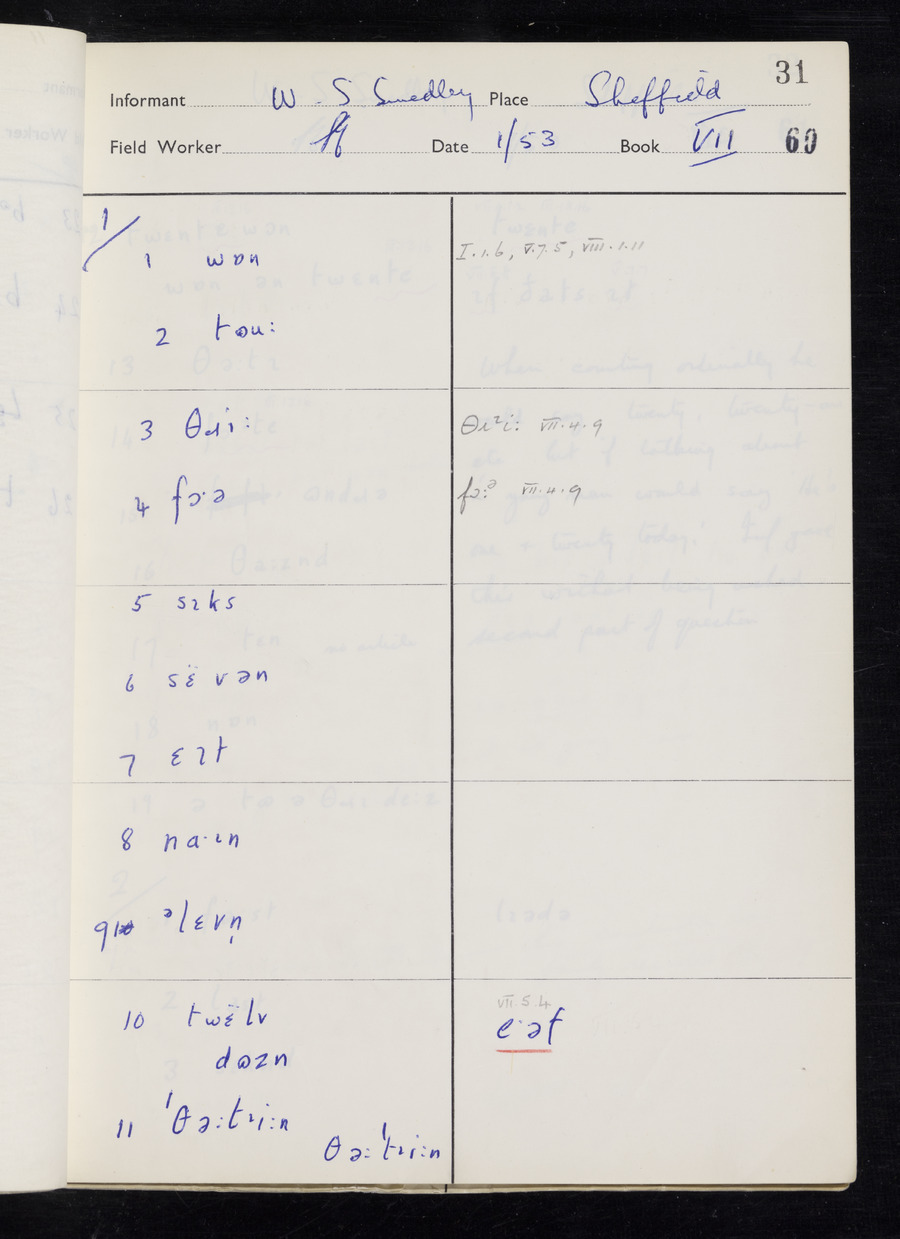 31
Informant W. S Smedley Place Sheffield
Field Worker Date 1/53 Book VII 60
1/
1 wɒn I.1.6, V.7.5, VIII.1.11
2 tɷu:
3 θɹi: θɹɪi: VII.4.9
4 fɔ·ə fɔ:ə VII.4.9
5 sɪks
6 sɛ̈vən
7 ɛɪt
8 na·ɪn
9 əlɛvn̩
10 twɛ̈lv VII.5.4
dɷzn e·əf
11 ˈθə:tɹi:n
θə:ˈtɹi:n